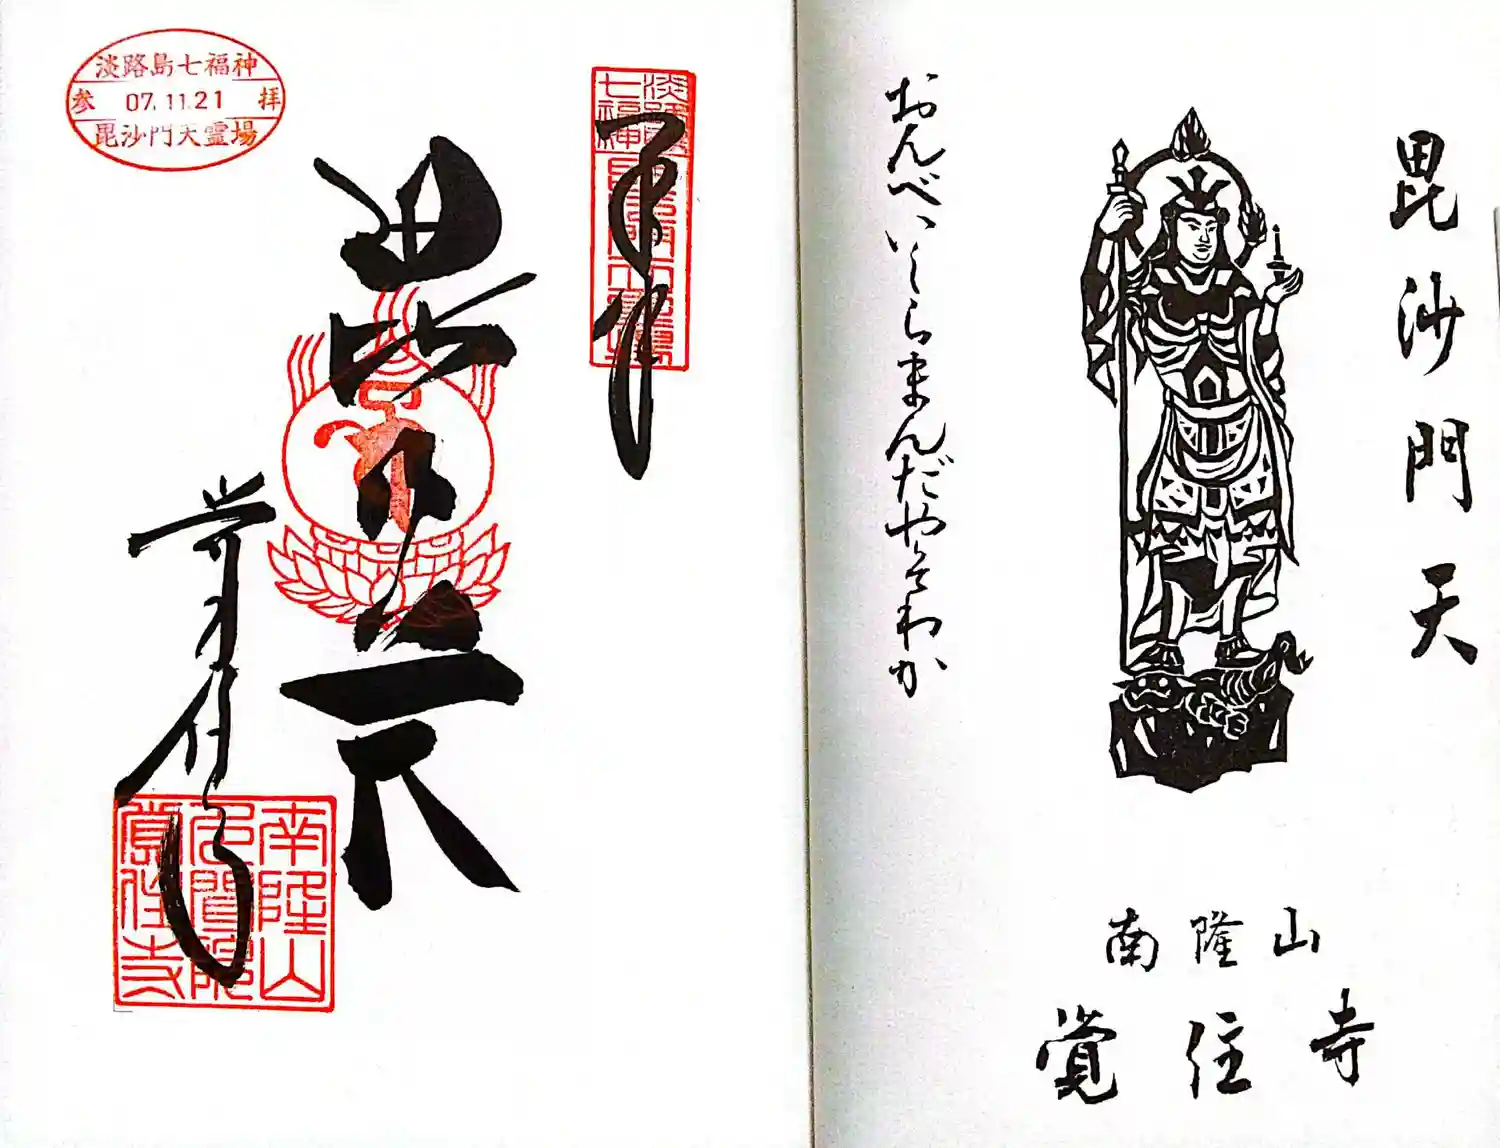 毘沙門天
おんべいしらまんだやそわか
南隆山
覚住寺
淡路島七福神
参 07.11.21 拝
毘沙門天霊場
奉拝
毘沙門天
覚住寺
南隆山
覚住寺